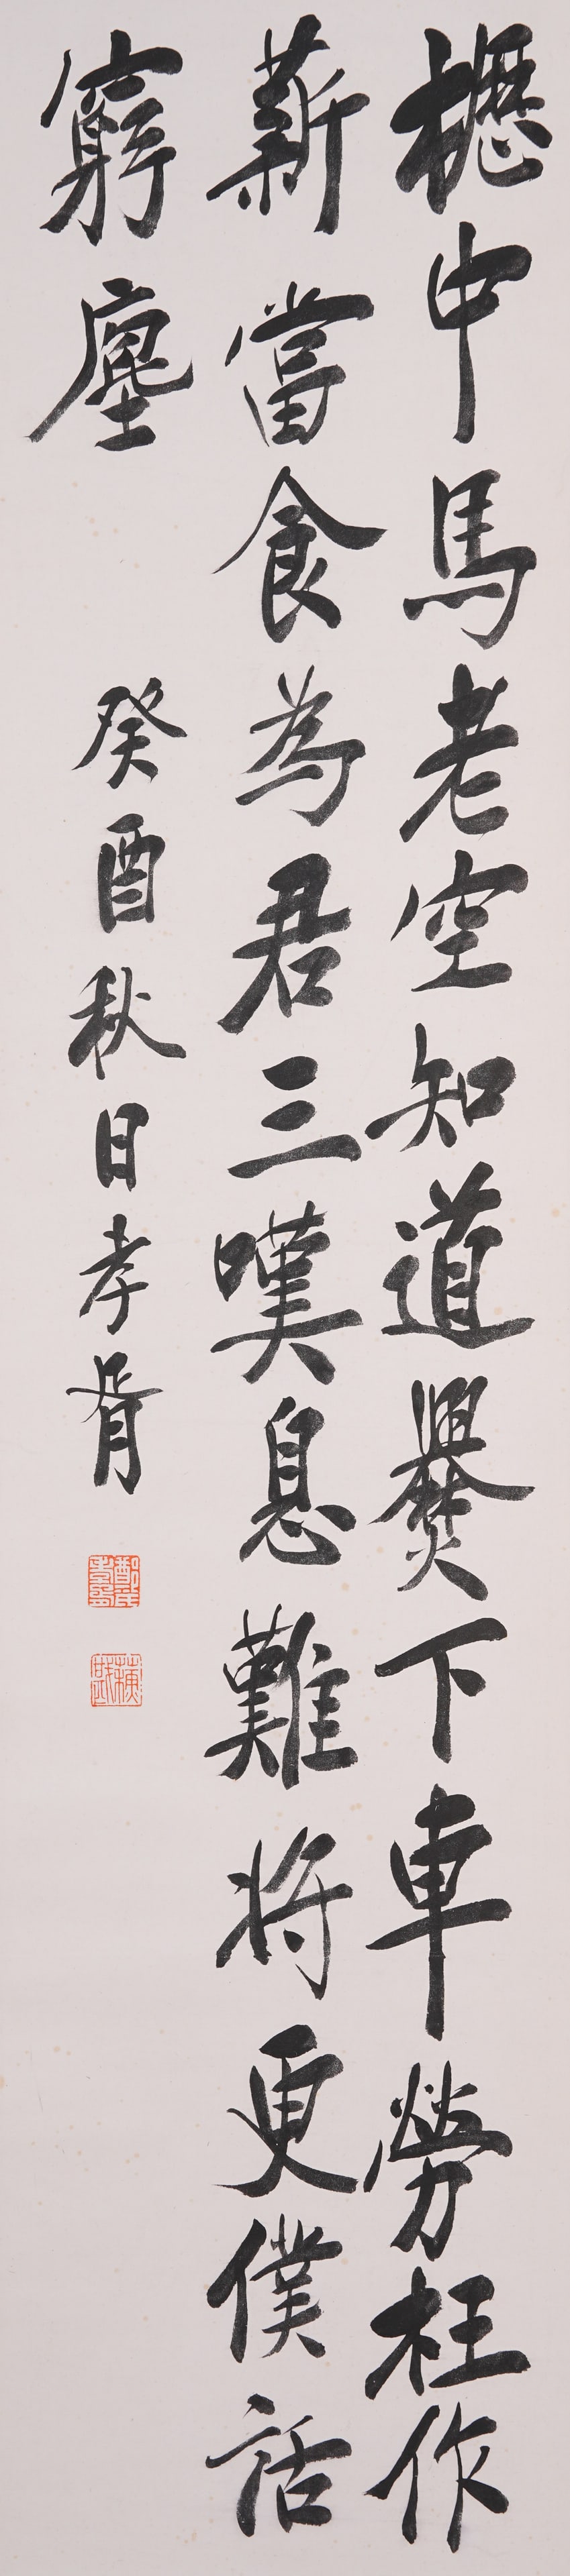 櫪中馬老空知道爨下車勞枉作
薪當食為君三嘆息難將更僕話
窮塵
癸酉秋日孝胥